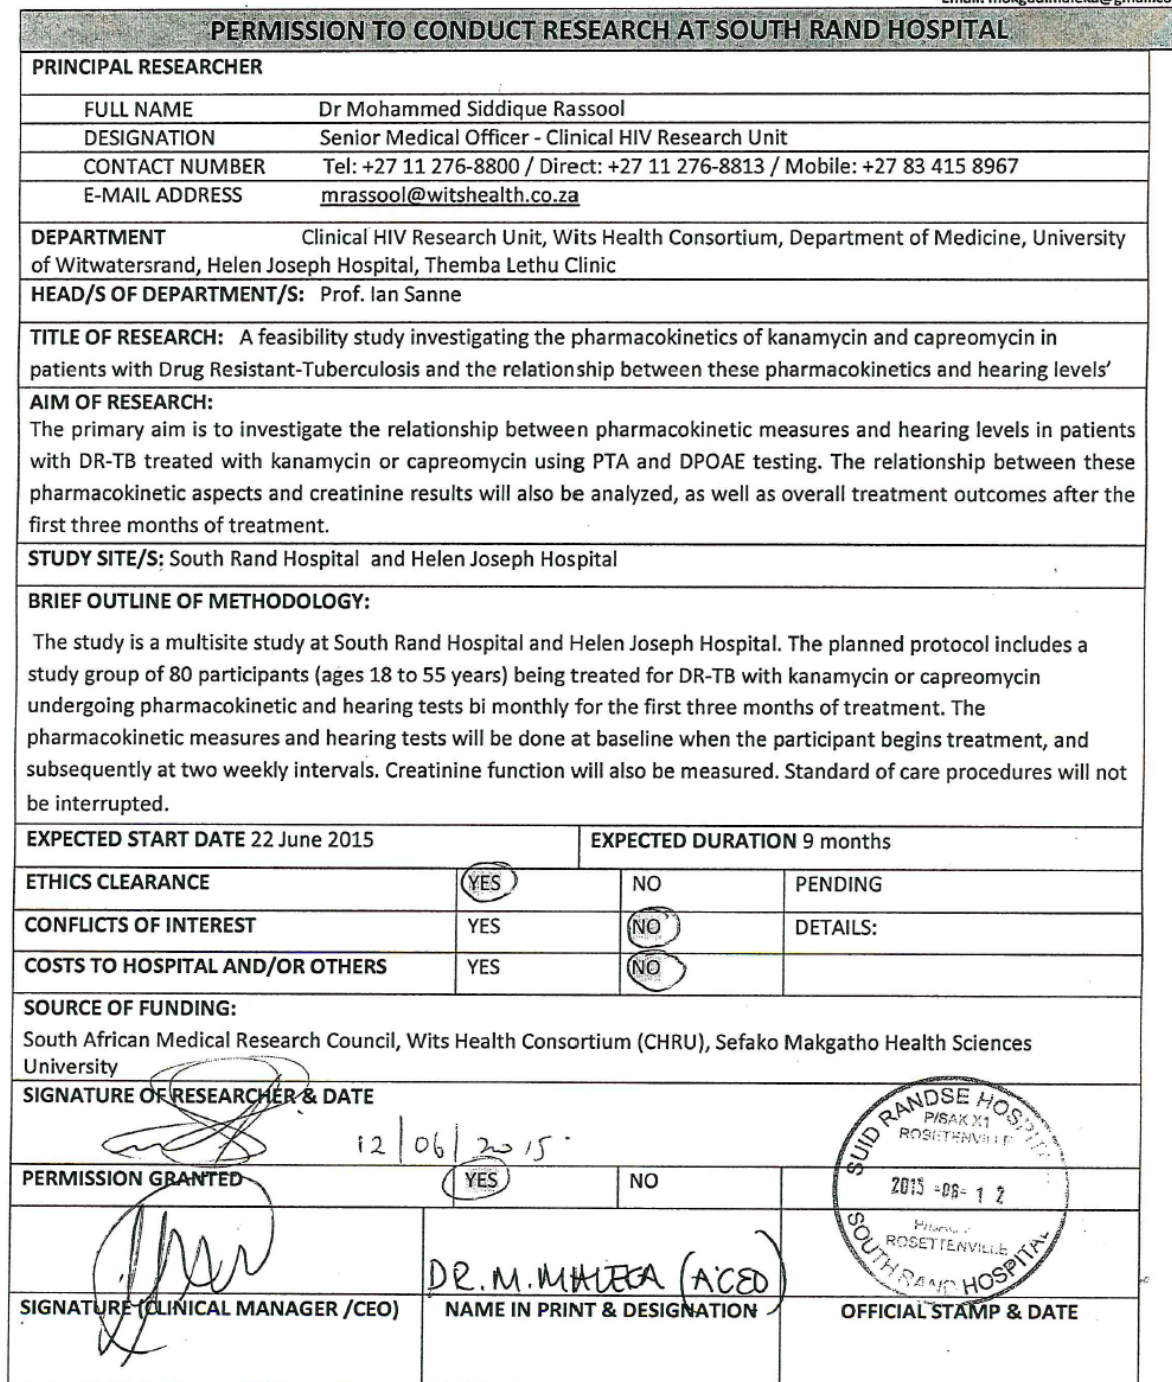 PERMISSION TO CONDUCT RESEARCH AT SOUTH RAND HOSPITAL
PRINCIPAL RESEARCHER
FULL NAME Dr Mohammed Siddique Rassool
DESIGNATION Senior Medical Officer - Clinical HIV Research Unit
CONTACT NUMBER Tel: +27 11 276-8800 / Direct: +27 11 276-8813 / Mobile: +27 83 415 8967
E-MAIL ADDRESS mrassool@witshealth.co.za
DEPARTMENT Clinical HIV Research Unit, Wits Health Consortium, Department of Medicine, University
of Witwatersrand, Helen Joseph Hospital, Themba Lethu Clinic
HEAD/S OF DEPARTMENT/S: Prof. Ian Sanne
TITLE OF RESEARCH: A feasibility study investigating the pharmacokinetics of kanamycin and capreomycin in
patients with Drug Resistant-Tuberculosis and the relationship between these pharmacokinetics and hearing levels'
AIM OF RESEARCH:
The primary aim is to investigate the relationship between pharmacokinetic measures and hearing levels in patients
with DR-TB treated with kanamycin or capreomycin using PTA and DPOAE testing. The relationship between these
pharmacokinetic aspects and creatinine results will also be analyzed, as well as overall treatment outcomes after the
first three months of treatment.
STUDY SITE/S: South Rand Hospital and Helen Joseph Hospital
BRIEF OUTLINE OF METHODOLOGY:
The study is a multisite study at South Rand Hospital and Helen Joseph Hospital. The planned protocol includes a
study group of 80 participants (ages 18 to 55 years) being treated for DR-TB with kanamycin or capreomycin
undergoing pharmacokinetic and hearing tests bi monthly for the first three months of treatment. The
pharmacokinetic measures and hearing tests will be done at baseline when the participant begins treatment, and
subsequently at two weekly intervals. Creatinine function will also be measured. Standard of care procedures will not
be interrupted.
EXPECTED START DATE 22 June 2015 EXPECTED DURATION 9 months
ETHICS CLEARANCE YES NO PENDING
CONFLICTS OF INTEREST YES NO DETAILS:
COSTS TO HOSPITAL AND/OR OTHERS YES NO
SOURCE OF FUNDING:
South African Medical Research Council, Wits Health Consortium (CHRU), Sefako Makgatho Health Sciences
University
SIGNATURE OF RESEARCHER & DATE
12/06/2015
PERMISSION GRANTED YES NO
SUID RANDSE HOSPITAAL
P/SAK X1
ROSETTENVILLE
2015 -06- 12
ROSETTENVILLE
SOUTH RAND HOSPITAL
DR. M. MALEKA (ACEO)
SIGNATURE (CLINICAL MANAGER /CEO) NAME IN PRINT & DESIGNATION OFFICIAL STAMP & DATE